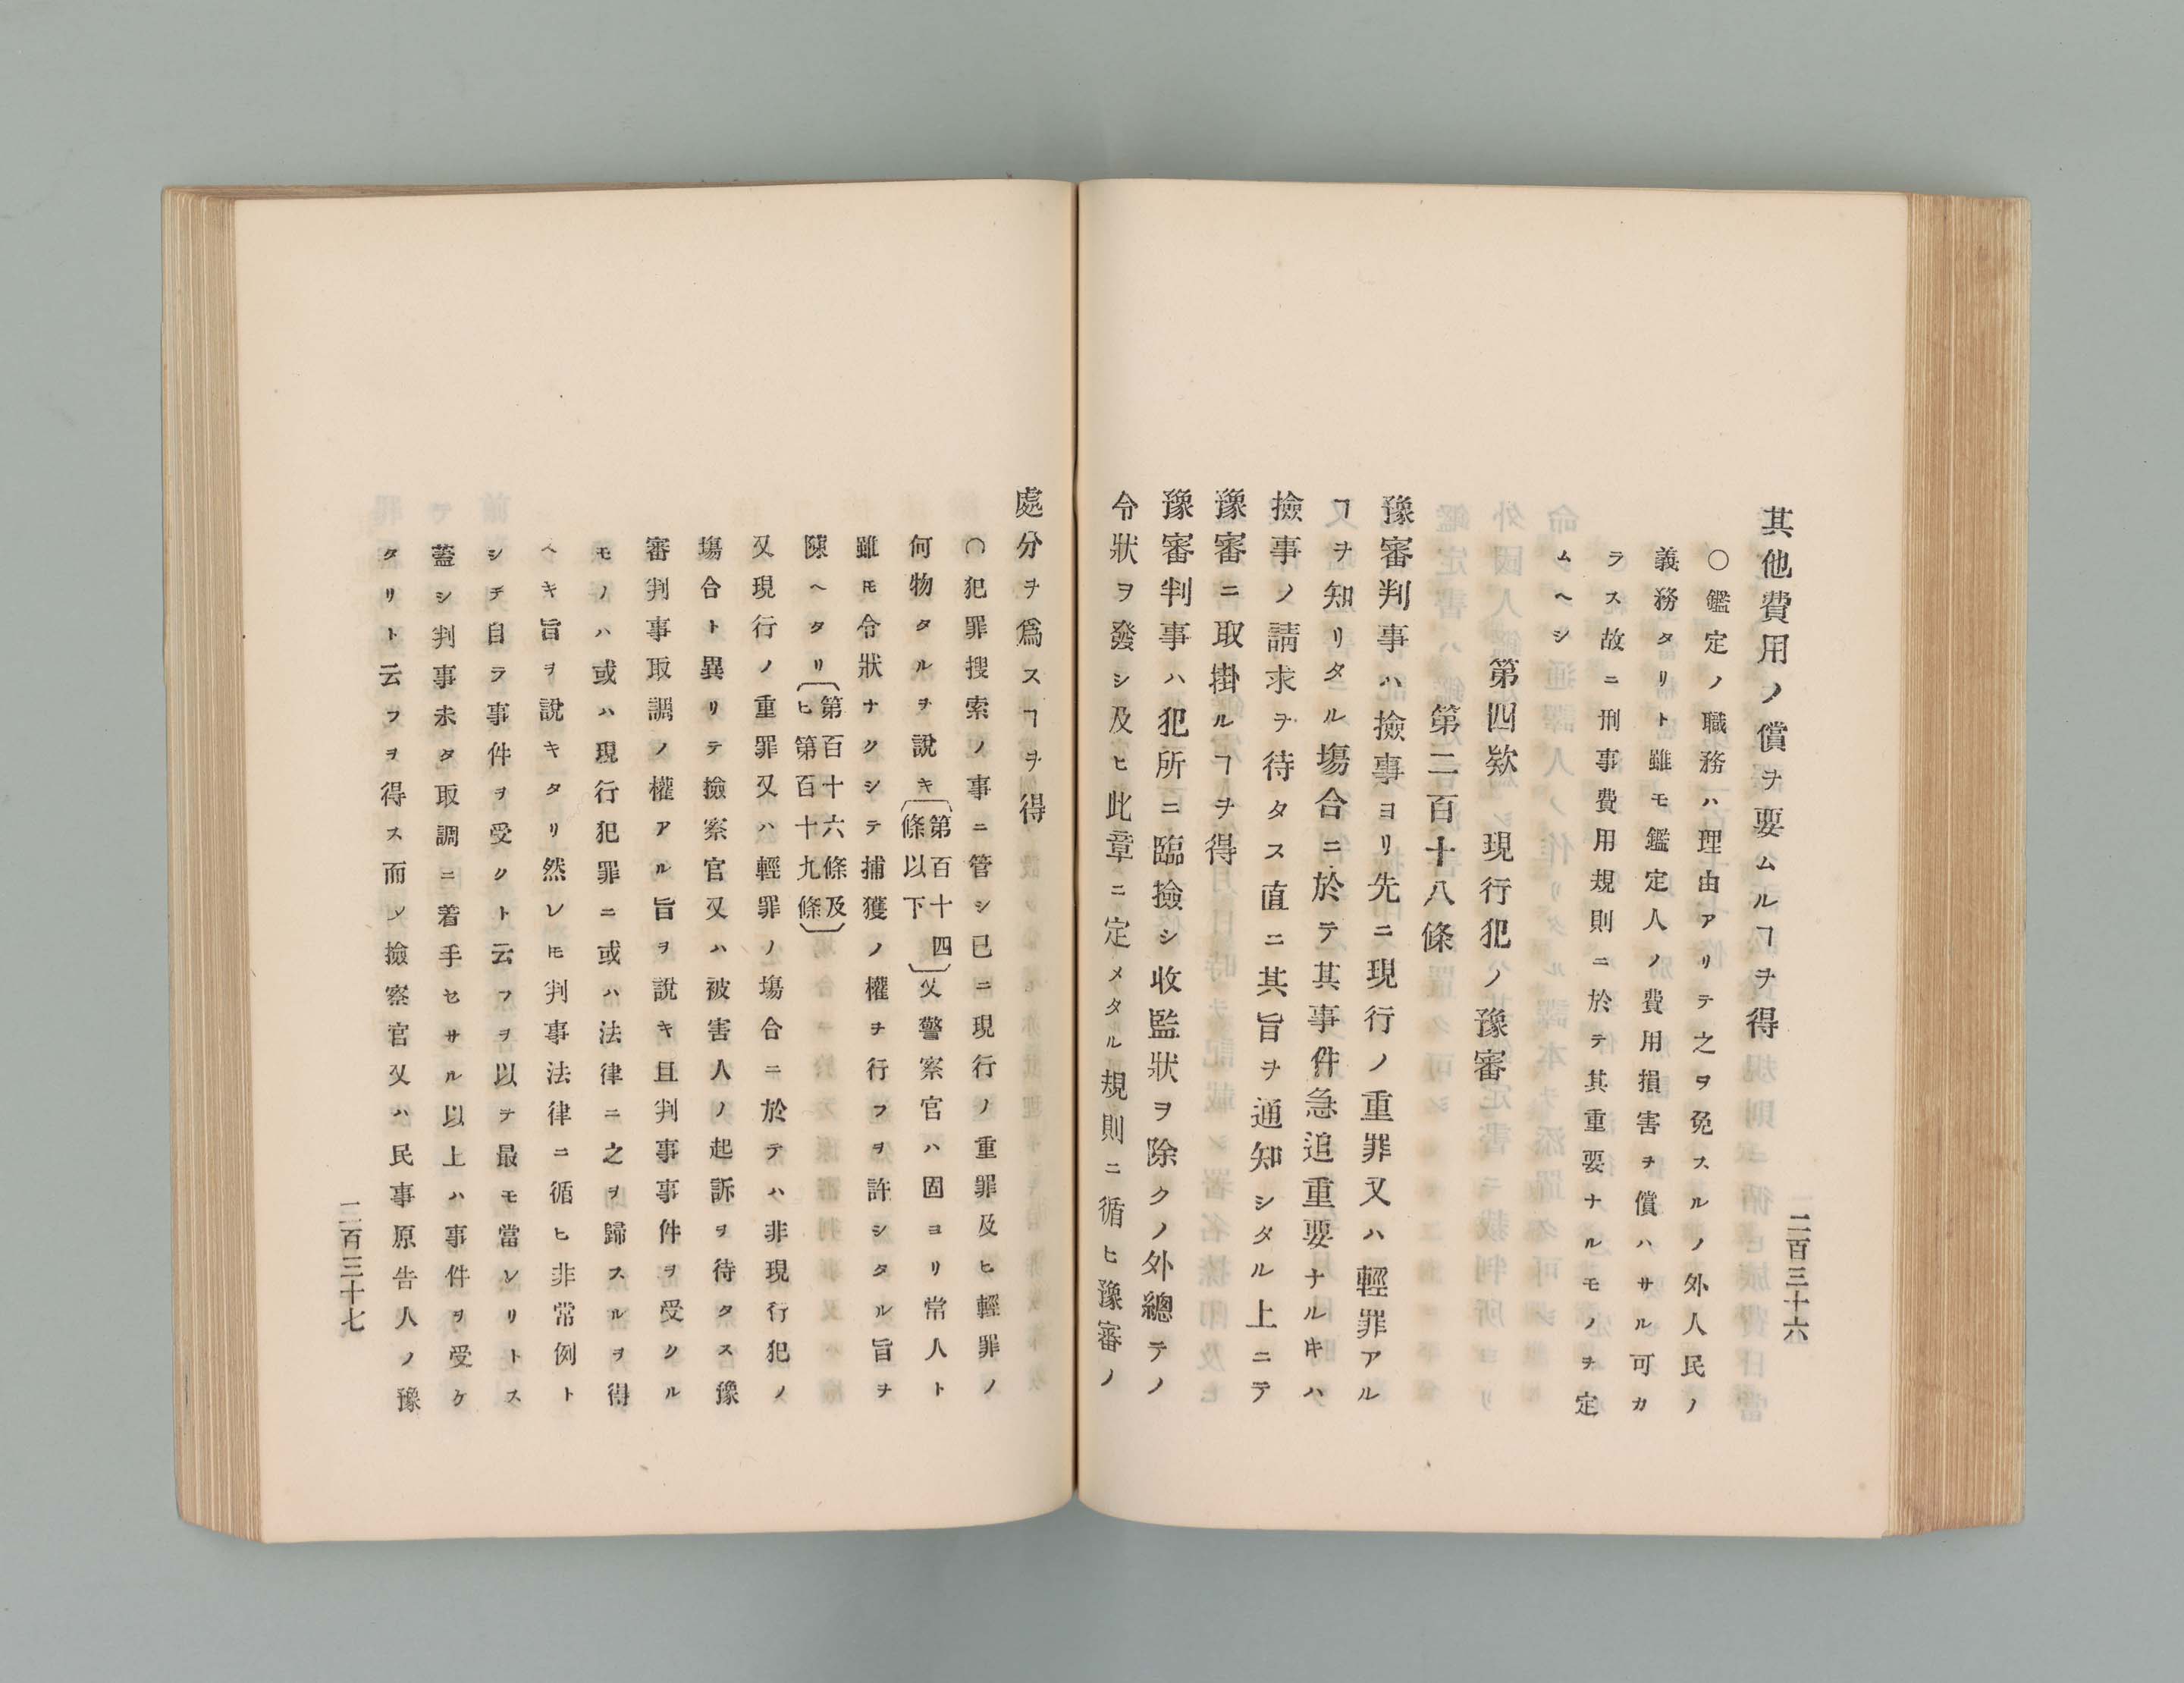 二百三十六
其他費用ノ償ヲ要ムルヿヲ得
〇鑑定ノ職務ハ理由アリテ之ヲ免スルノ外人民ノ
義務タリト雖モ鑑定人ノ費用損害ヲ償ハサル可カ
ラス故ニ刑事費用規則ニ於テ其重要ナルモノヲ定
ムヘシ
第四欵 現行犯ノ豫審
第二百十八條
豫審判事ハ撿事ヨリ先ニ現行ノ重罪又ハ輕罪アル
ヿヲ知リタル塲合ニ於テ其事件急追重要ナルキハ
撿事ノ請求ヲ待タス直ニ其旨ヲ通知シタル上ニテ
豫審ニ取掛ルヿヲ得
豫審判事ハ犯所ニ臨撿シ收監狀ヲ除クノ外總テノ
令狀ヲ發シ及ヒ此章ニ定メタル規則ニ循ヒ豫審ノ
處分ヲ爲スヿヲ得
〇犯罪搜索ノ事ニ管シ已ニ現行ノ重罪及ヒ輕罪ノ
何物タルヲ說キ〔第百十四條以下〕又警察官ハ固ヨリ常人ト
雖モ令狀ナクシテ捕獲ノ權ヲ行フヲ許シタル旨ヲ
陳ヘタリ〔第百十六條及ヒ第百十九條〕
又現行ノ重罪又ハ輕罪ノ塲合ニ於テハ非現行犯ノ
塲合ト異リテ撿察官又ハ被害人ノ起訴ヲ待タス豫
審判事取調ノ權アル旨ヲ說キ且判事事件ヲ受クル
モノハ或ハ現行犯罪ニ或ハ法律ニ之ヲ歸スルヲ得
ヘキ旨ヲ說キタリ然レ𪜈判事法律ニ循ヒ非常例ト
シテ自ラ事件ヲ受クト云フヲ以テ最モ當レリトス
蓋シ判事未タ取調ニ着手セサル以上ハ事件ヲ受ケ
タリト云フヲ得ス而ノ撿察官又ハ民事原告人ノ豫
二百三十七